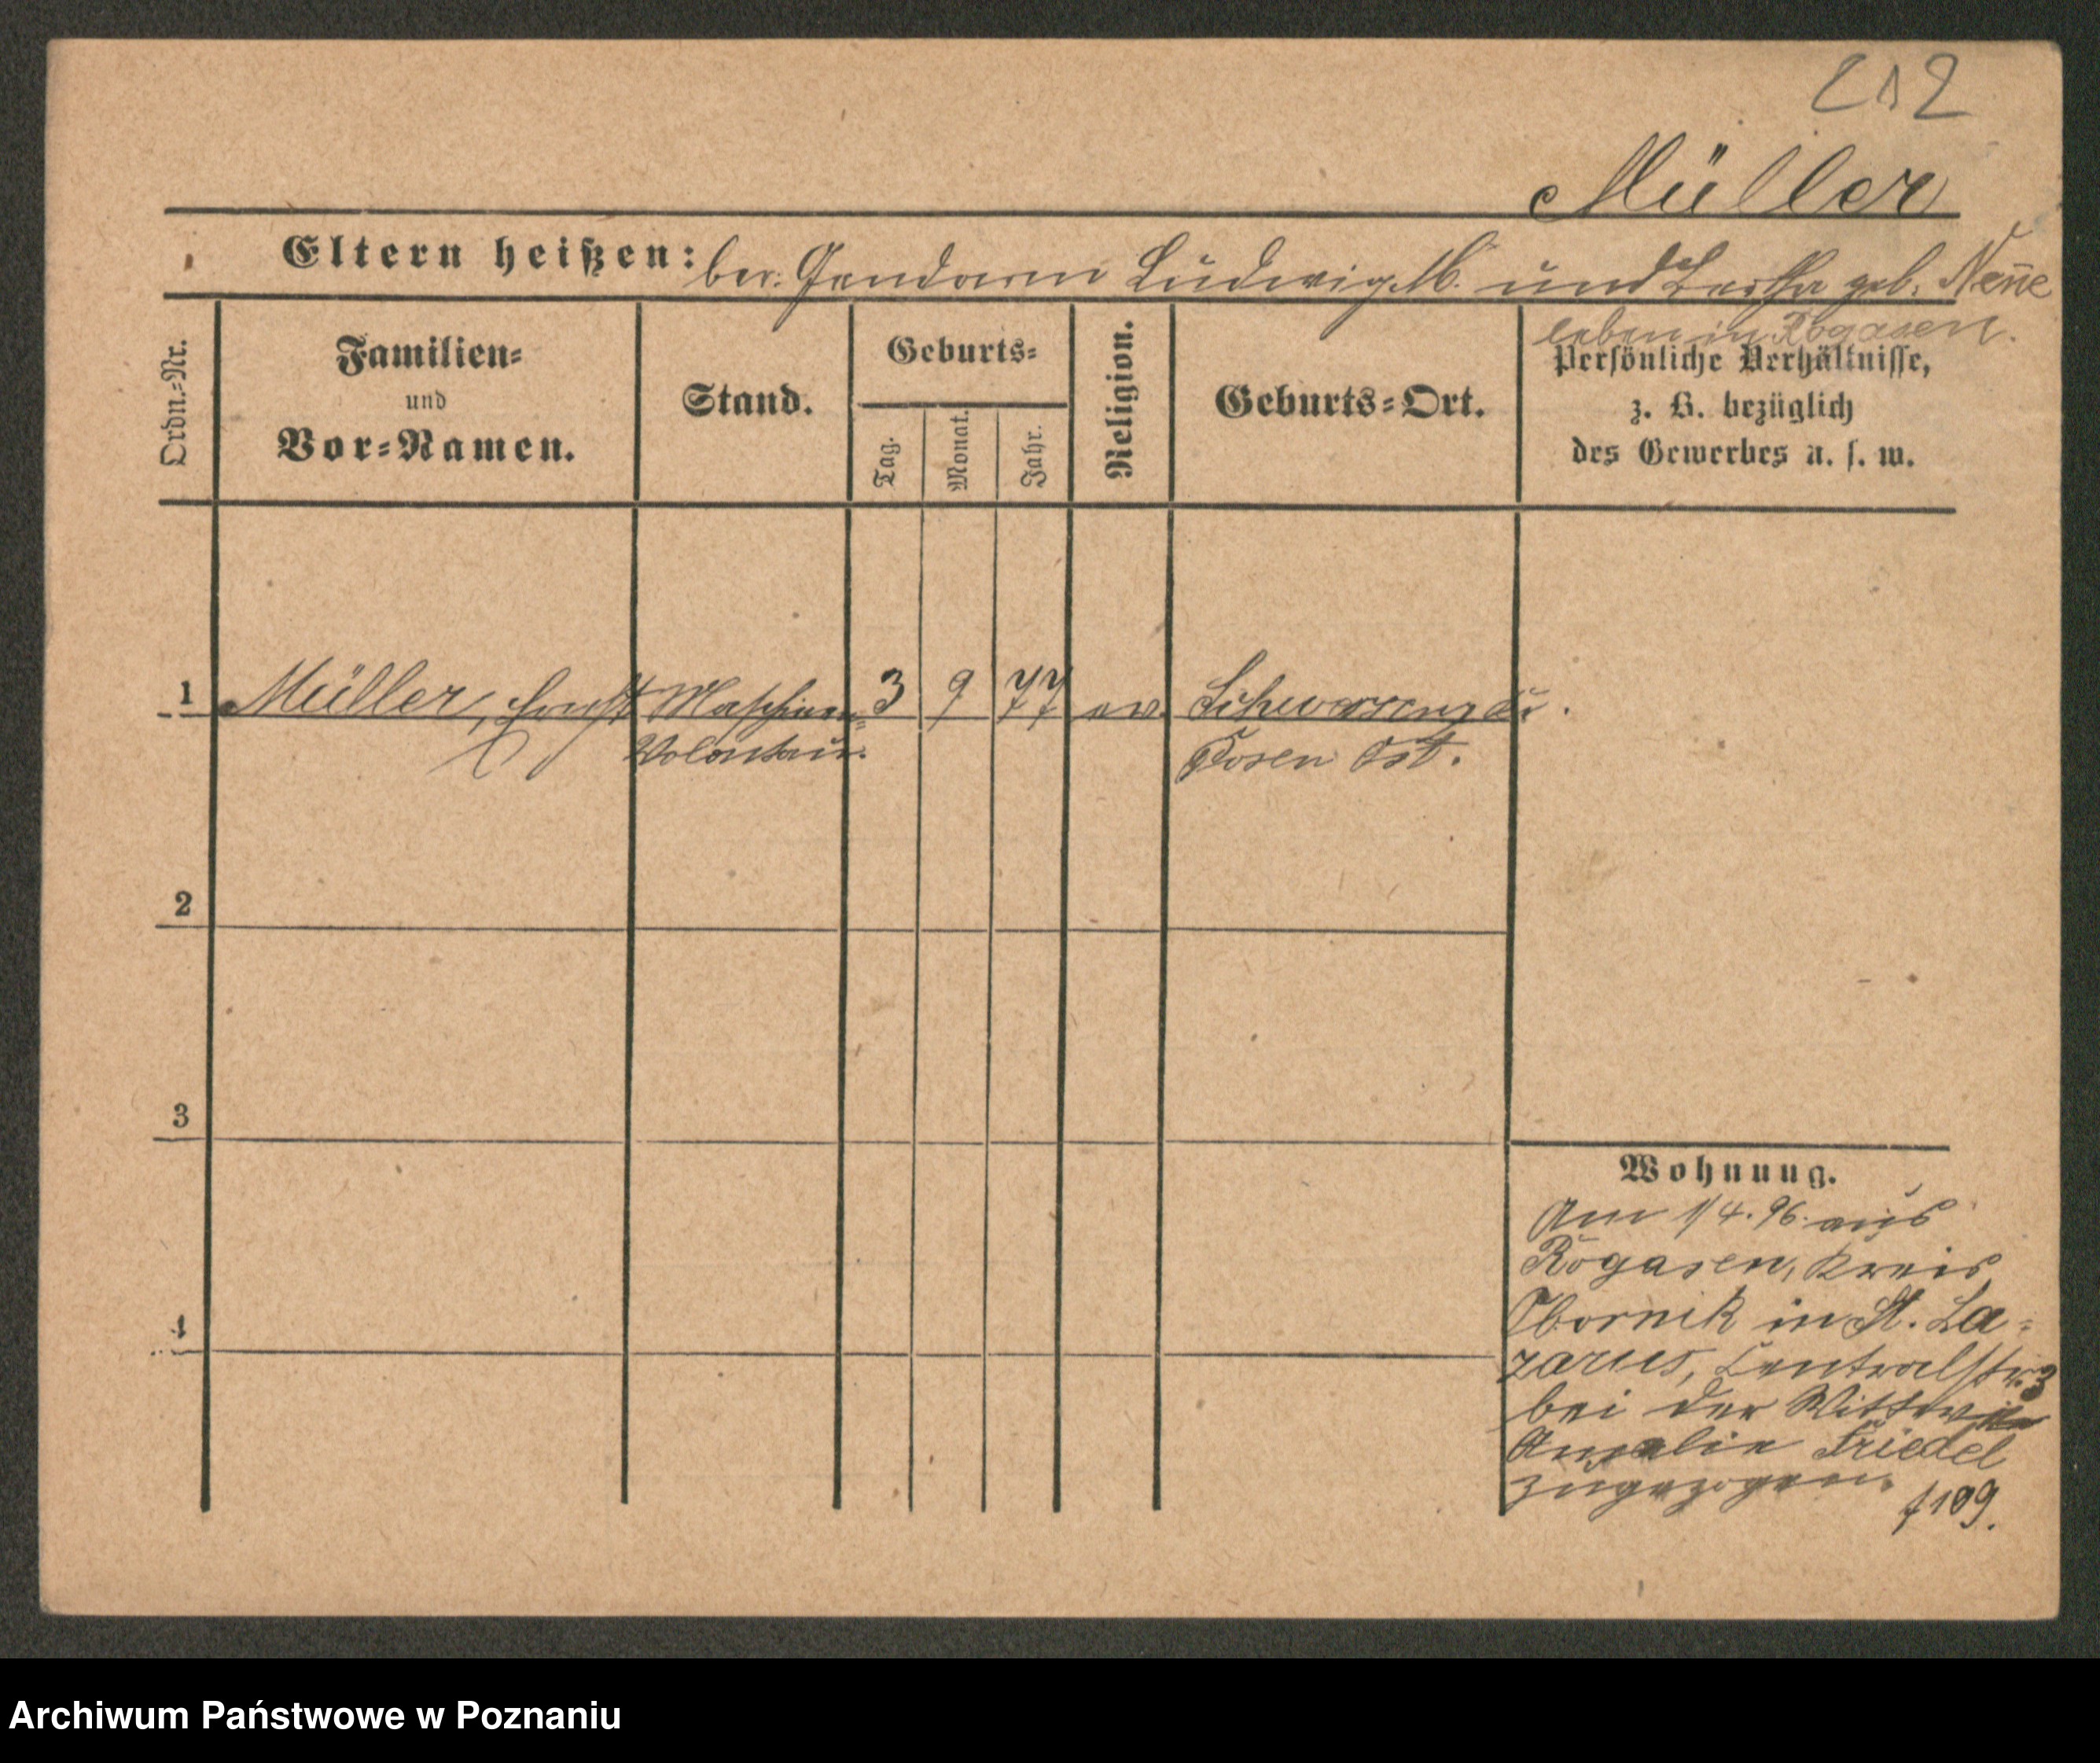 212
Müller
Eltern heißen: ber. Gendarm Ludwig M. und Bertha geb. Nen̄e
leben in Rogasen.
Ordn.=Nr.
Familien=
und
Vor=Namen.
Stand.
Geburts=
Tag.
Monat.
Jahr.
Religion.
Geburts=Ort.
Persönliche Verhältnisse,
z. B. bezüglich
des Gewerbes u. s. w.
1 Müller, Ernst Maschinen= 3 9 77 ev. Schwersenz Kr.
Volontair. Posen Ost.
2
3
4
Wohnung.
Am 1/4. 96. aus
Rogasen, Kreis
Obornik in St. La=
zarus, Centralstr. 3
bei der Wittwe
Amalie Friedel
zugezogen.
f 109.
Archiwum Państwowe w Poznaniu